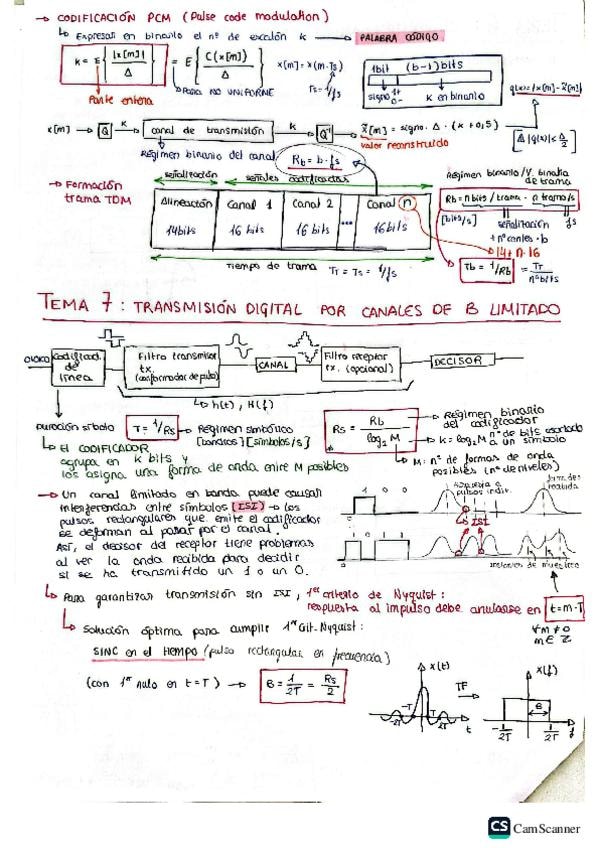 → CODIFICACIÓN PCM (Pulse code modulation)
↳ Expresar en binario el nº de escalón k → PALABRA CÓDIGO
k = E{|x[m]|/Δ} = E{C(x[m])/Δ} x[m] = x(m·Ts)
Parte entera
PARA NO UNIFORME
Ts = 1/fs
1bit (b-1) bits
signo K en binario
x[m] → Q → k → canal de transmisión → k → Q⁻¹ → x̃[m] = signo · Δ · (k + 0,5)
valor reconstruido
Régimen binario del canal: Rb = b · fs
→ Formación
trama TDM
señalización señales codificadas
Alineación Canal 1 Canal 2 ... Canal n
14bits 16 bits 16 bits 16bits
Tiempo de trama Tr = Ts = 1/fs
Régimen binario/V. binaria
de trama
Rb = nbits/trama · n tramas/s
[bits/s] señalización fs
+ nºcanles · b
14 + n·16
Tb = 1/Rb = Tr/nºbits
TEMA 7: TRANSMISIÓN DIGITAL POR CANALES DE B LIMITADO
Codificad.
de
línea
Filtro transmisor
tx.
(conformador de pulso)
CANAL
Filtro receptor
tx. (opcional)
DECISOR
↳ h(t), H(f)
Duración símbolo T = 1/Rs → Régimen simbólico
[baudios] [símbolos/s]
Rs = Rb/log₂ M
→ Régimen binario
del codificador
→ k = log₂ M nº de bits asociado
a un símbolo
→ M: nº de formas de onda
posibles (nº de niveles)
↳ El CODIFICADOR
agrupa en k bits y
los asigna una forma de onda entre M posibles
→ Un canal limitado en banda puede causar
interferencias entre símbolos (ISI) → los
pulsos rectangulares que emite el codificador
se deforman al pasar por el canal.
Así, el decisor del receptor tiene problemas
al ver la onda recibida para decidir
si se ha transmitido un 1 o un 0.
1 0 0
Respuesta a
pulsos indiv.
onda
recibida
ISI
1 0 1 1
instantes de muestreo
↳ Para garantizar transmisión sin ISI, 1er criterio de Nyquist:
respuesta al impulso debe anularse en t = m·T
∀m ≠ 0
m ∈ Z
↳ Solución óptima para cumplir 1er Crit. Nyquist:
SINC en el tiempo (pulso rectangular en frecuencia)
(con 1er nulo en t = T) → B = 1/2T = Rs/2
x(t) TF X(f)
-2T -T T 2T t
B
-1/2T 1/2T f
CS CamScanner